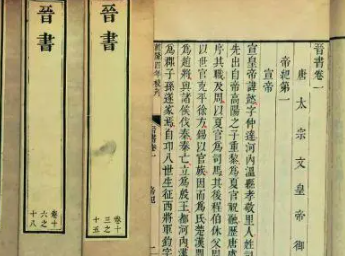 晉書卷一
唐太宗文皇帝御
帝紀第一
宣帝
宣皇帝諱懿字仲達河內溫縣孝敬里人姓司
先出自帝高陽之子重黎為夏官祝融歷唐虞
序其職及周以夏官為司馬其後程伯休父周
以世官克平徐方錫以官族因而為氏楚漢間
為趙將與諸侯伐秦秦亡立為殷王都河內漢
為郡子孫遂家焉自卬八世生征西將軍鈞字
乾隆四年校刊
晉書卷一
晉書
卷十
三之
十五
晉書
卷十
六之
十八